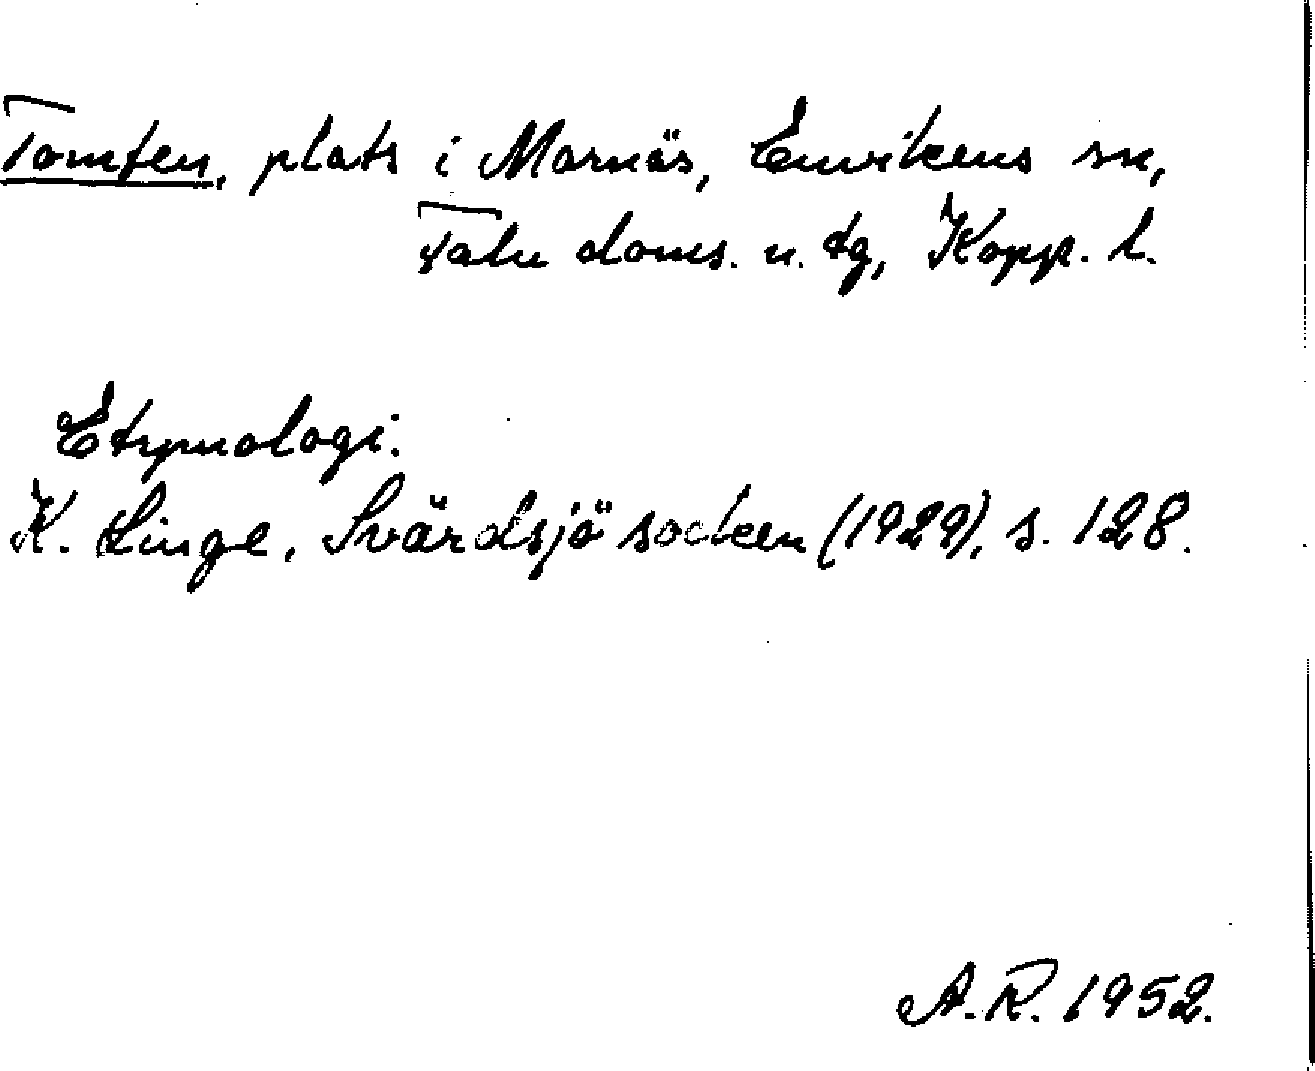 Tomten, plats i Marnäs, Envikens sn,
Falu doms. u. tg, Kopp. l.
Etymologi.
K. Linge, Svärdsjö socken (1929), s. 128.
A. R. 1952.